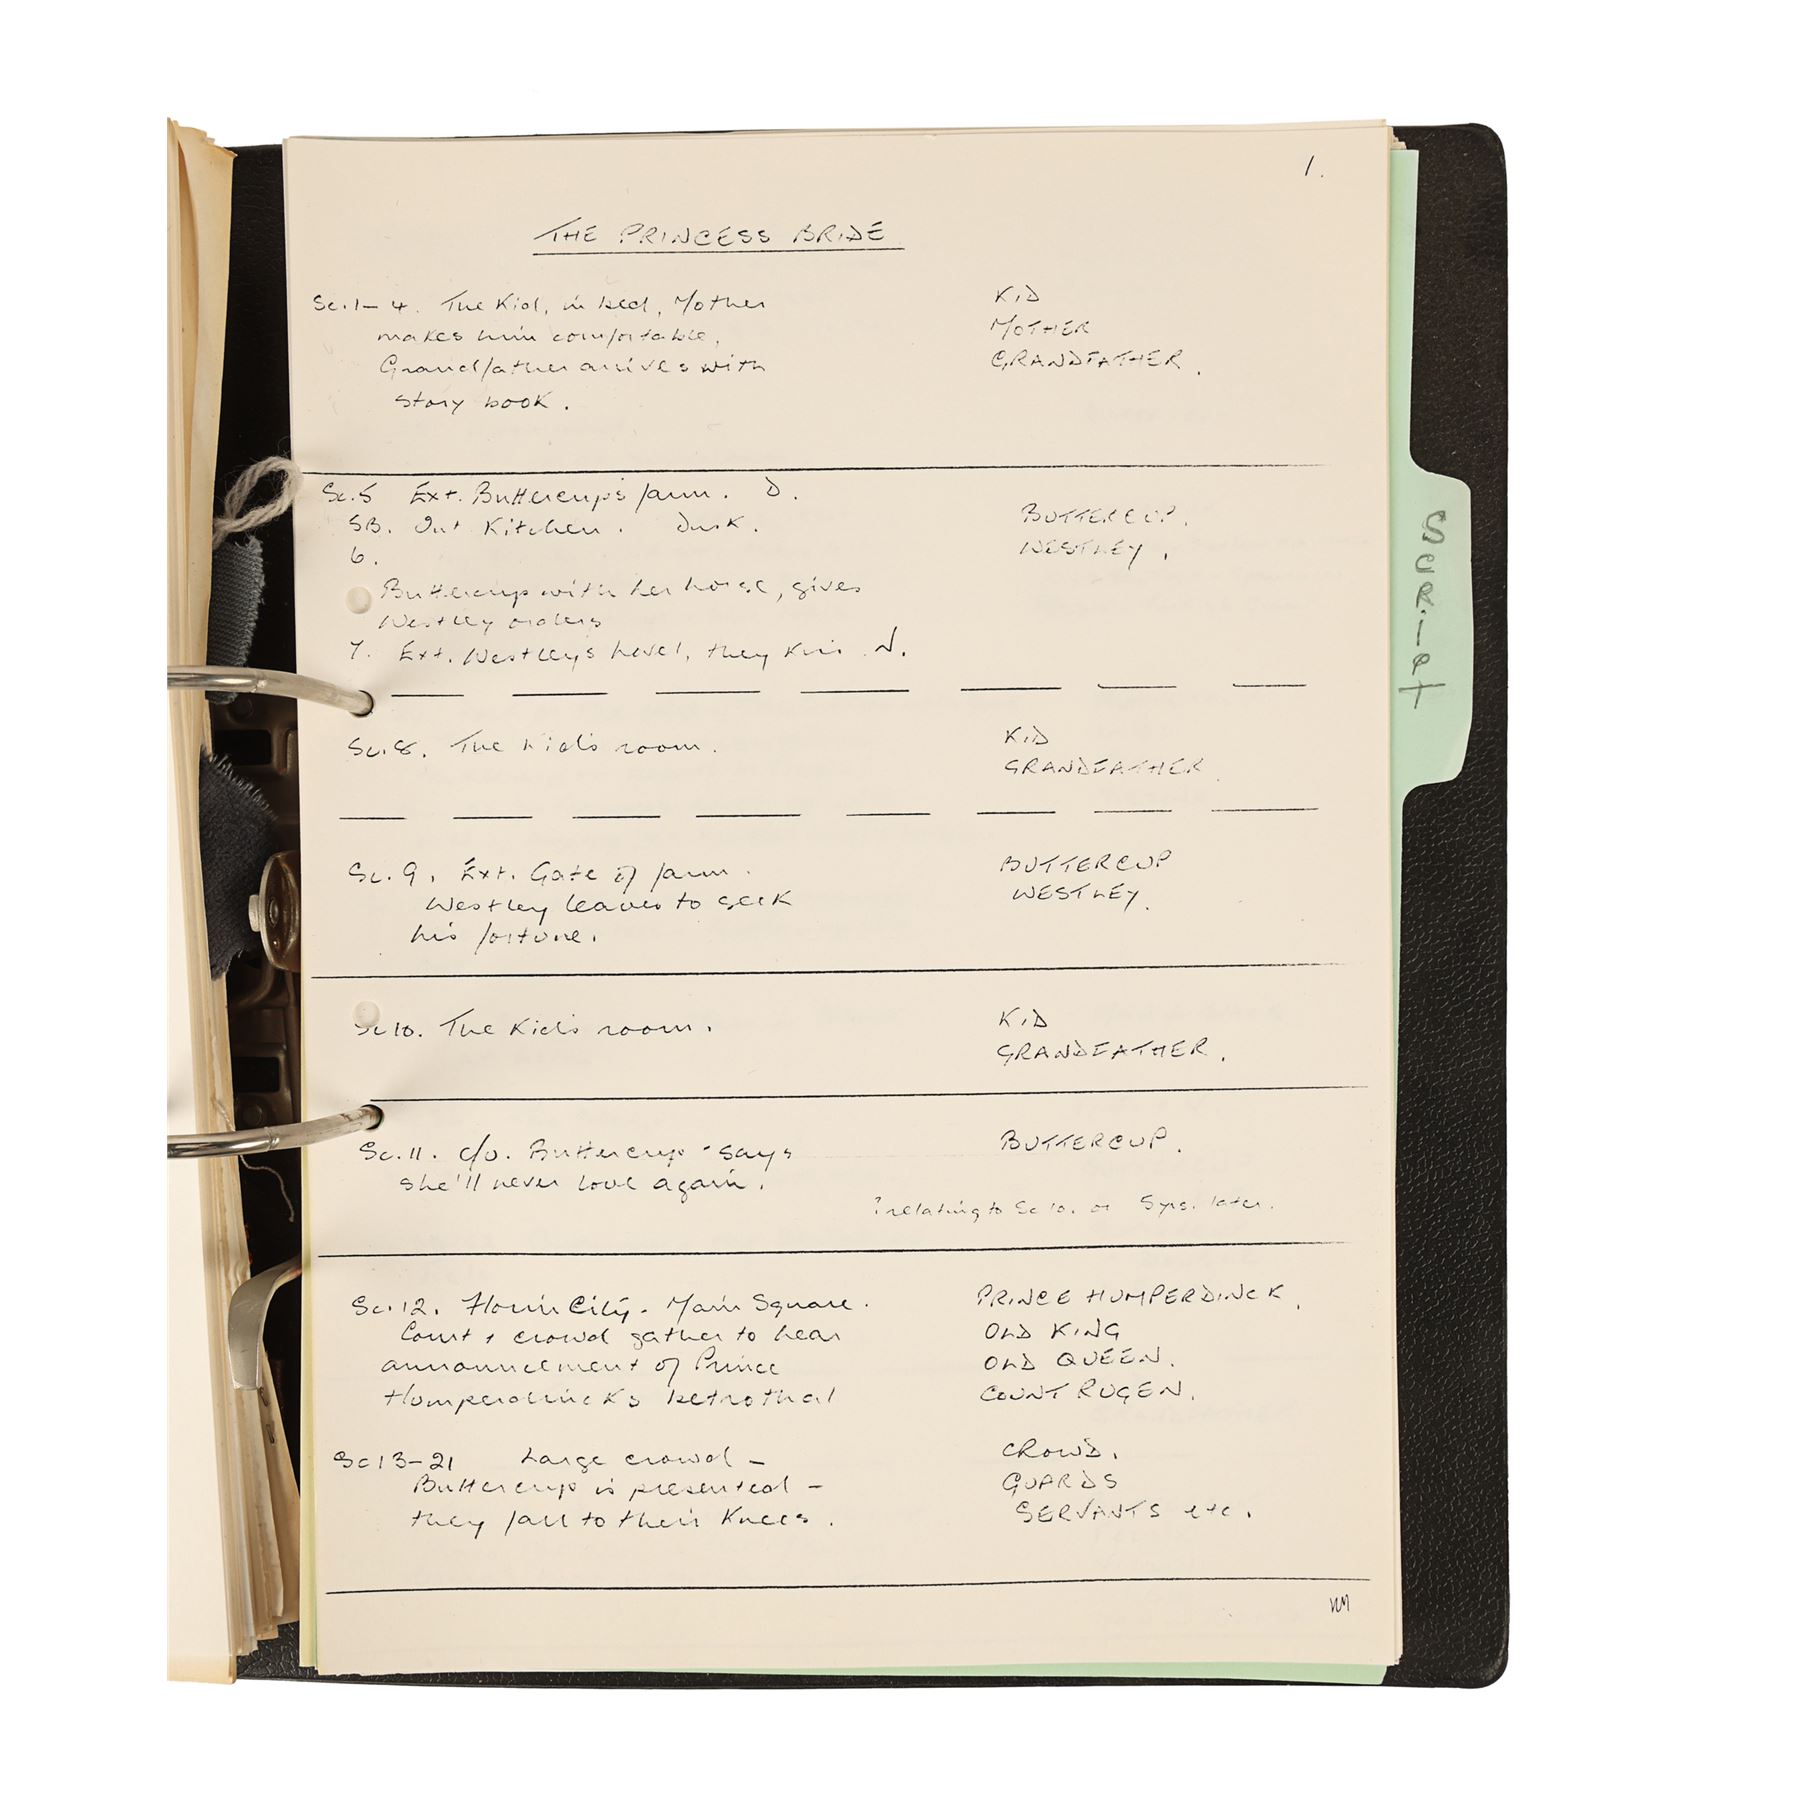 1.
THE PRINCESS BRIDE
Sc.1-4. The Kid, in bed, Mother KID
makes him comfortable, MOTHER
Grandfather arrives with GRANDFATHER.
story book.
Sc.5 Ext. Buttercup's farm. D.
5B. Int Kitchen. Dusk. BUTTERCUP.
6. WESTLEY.
Buttercup with her horse, gives
Westley orders
7. Ext. Westley's hovel, they kiss. N.
Sc.8. The Kid's room. KID
GRANDFATHER.
Sc.9. Ext. Gate of farm. BUTTERCUP
Westley leaves to seek WESTLEY.
his fortune.
Sc 10. The Kid's room. KID
GRANDFATHER.
Sc.11. c/u. Buttercup - says BUTTERCUP.
she'll never love again.
? relating to Sc 10. or 5 yrs. later.
Sc.12. Florin City. Main Square. PRINCE HUMPERDINCK.
Court + crowd gather to hear OLD KING
announcement of Prince OLD QUEEN.
Humperdincks betrothal COUNT RUGEN.
Sc 13-21 Large crowd - CROWD.
Buttercup is presented - GUARDS
they fall to their knees. SERVANTS etc.
Script